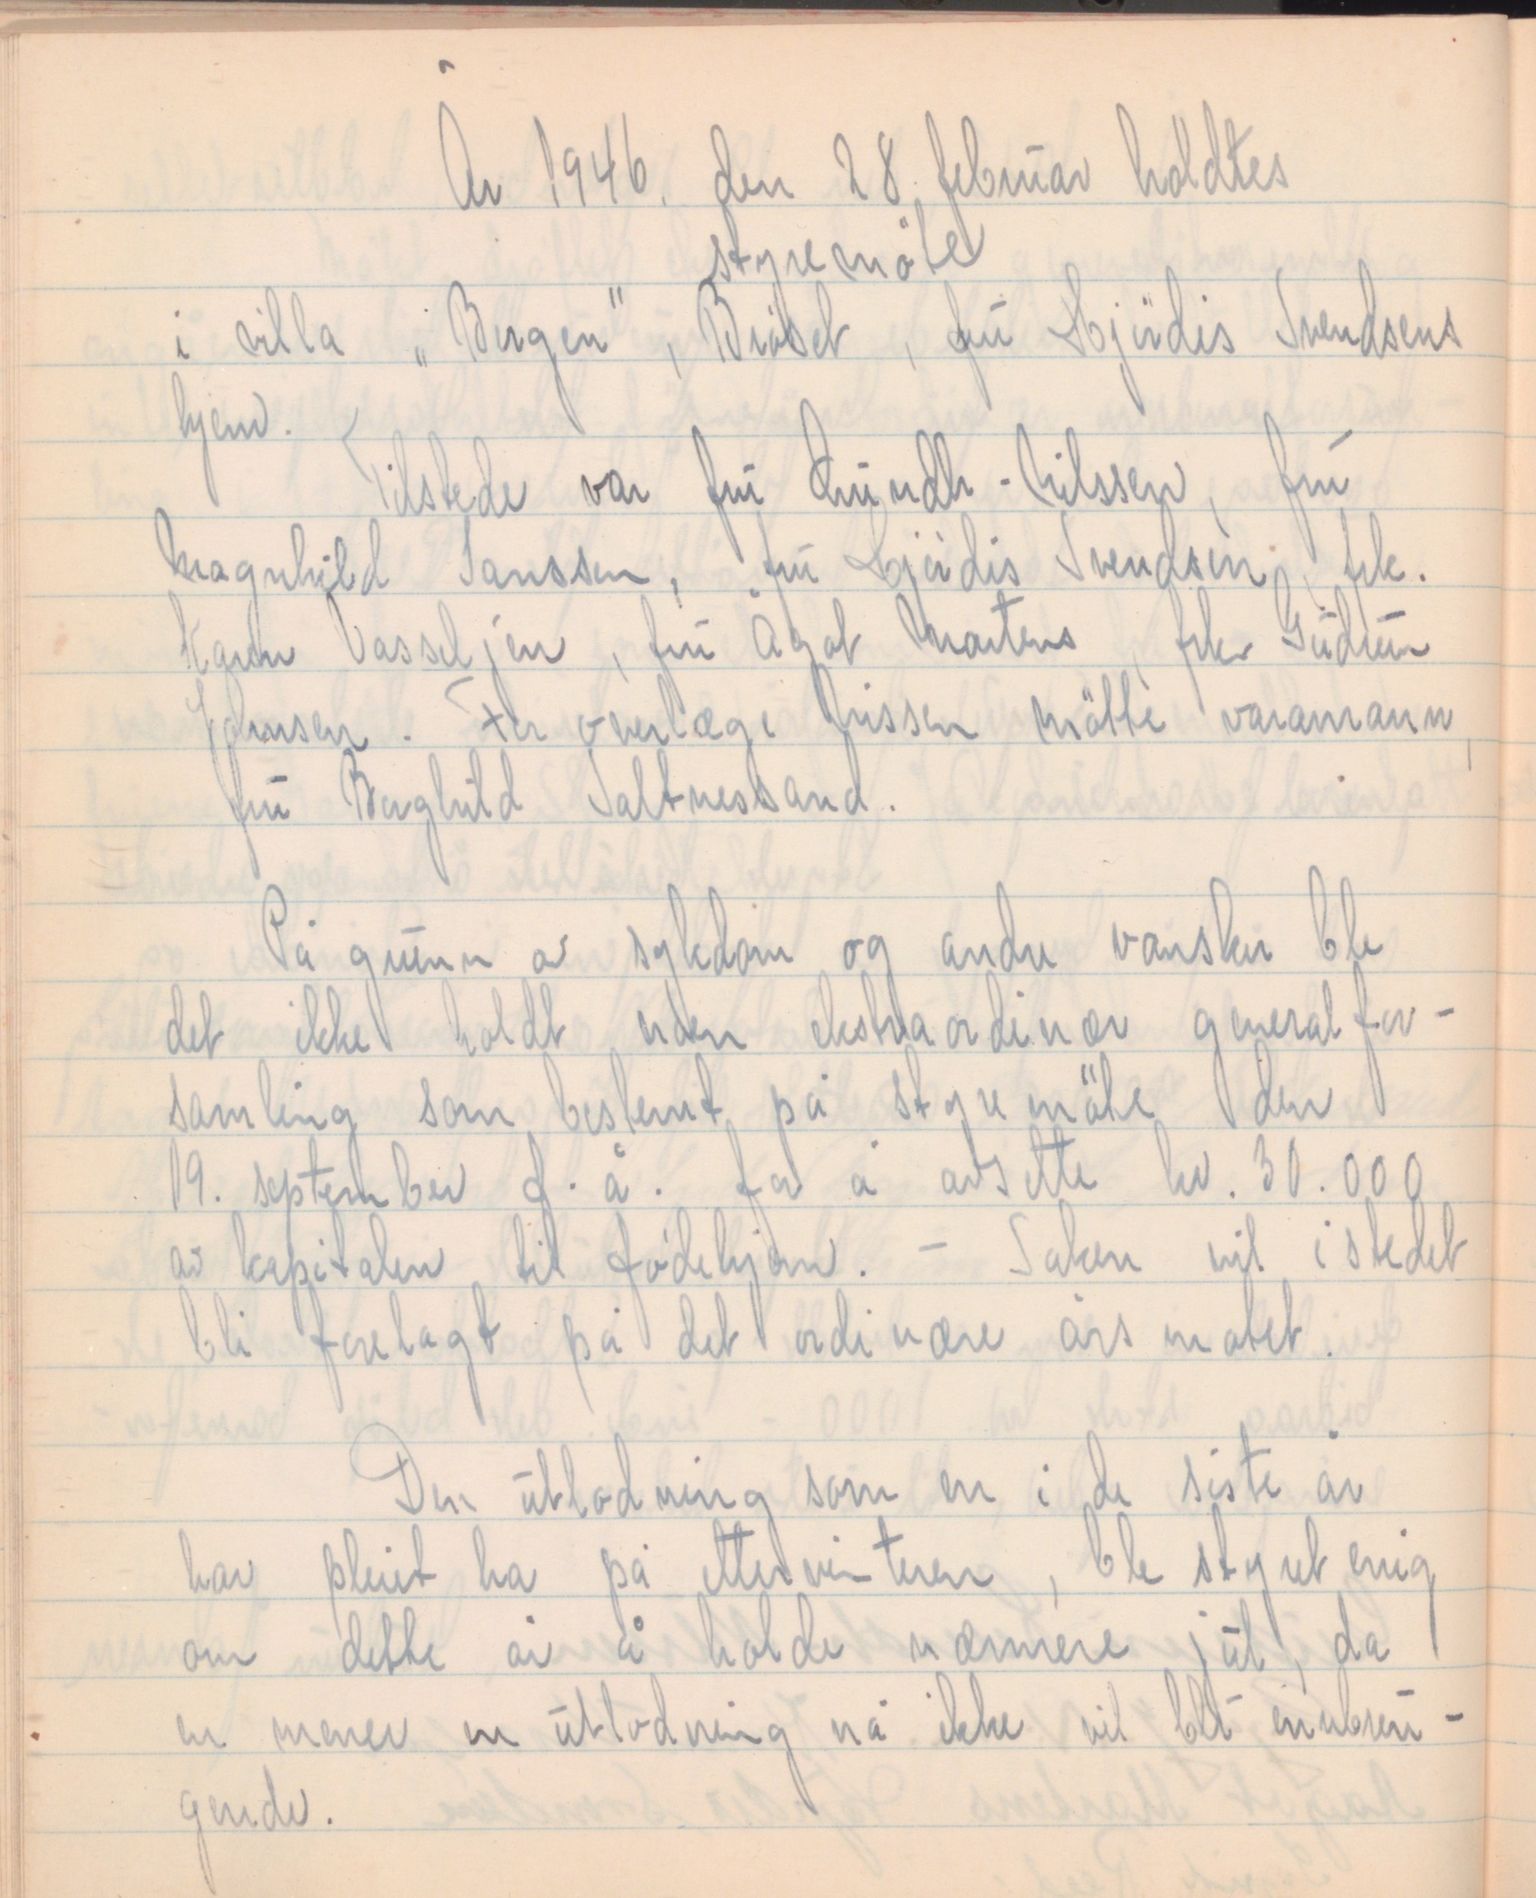 År 1946, den 28. februar holdtes
styremöte
i villa „Bergen", Bröset, fru Hjördis Svendsens
hjem.
Tilstede var fru Lundh-Nilssen, fru
Magnhild Janssen, fru Hjördis Svendsen, frk.
Karen Vasseljen, fru Ågot Martens, frk Gudrun
Johnsen. For overlæge Nissen mötte varamann,
fru Borghild Saltnessand.
På grunn av sykdom og andre vansker ble
det ikke holdt noen ekstraordinær generalfor-
samling som bestemt på styremöte den
19. september f.å. for å avsette kr. 30.000
av kapitalen til födehjem. - Saken vil istedet
bli forelagt på det ordinære årsmötet.
Den utlodning som en i de siste år
har pleiet ha på ettervinteren, ble styret enig
om dette år å holde nærmere jul, da
en mener en utlodning nå ikke vil bli innbrin-
gende.